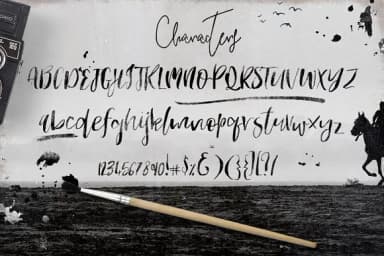 Characters
ABCDEFGHIJKLMNOPQRSTUVWXYZ
abcdefghijklmnopqrstuvwxyz
1234567890!#$%&)({}[]?/